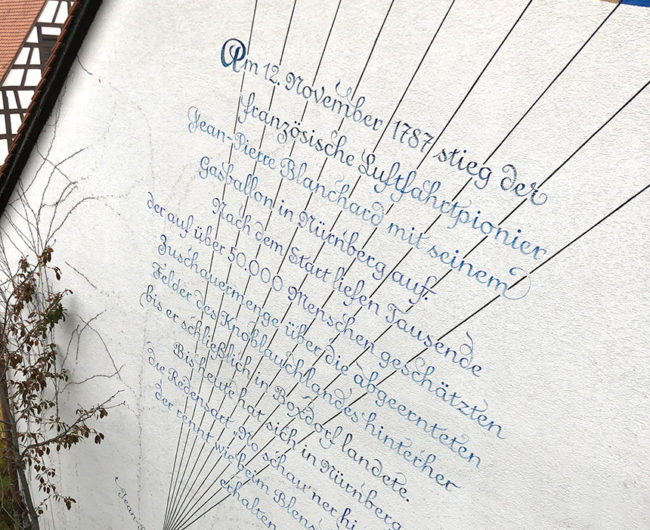 Am 12. November 1787 stieg der
französische Luftfahrtpionier
Jean-Pierre Blanchard mit seinem
Gasballon in Nürnberg auf.
Nach dem Start liefen Tausende
der auf über 50.000 Menschen geschätzten
Zuschauermenge über die abgeernteten
Felder des Knoblauchlandes hinterher
bis er schließlich in Boxdorf landete.
Bis heute hat sich in Nürnberg
die Redensart „No schau' ner hi
der rennt wie beim
erhalten
Jean-